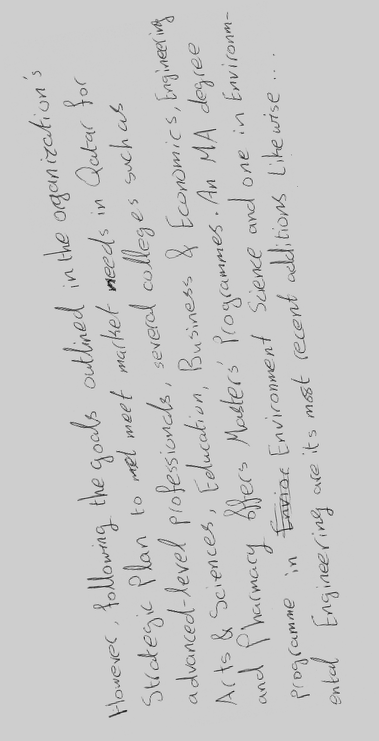 However, following the goals outlined in the organization's
Strategic Plan to meet market needs in Qatar for
advanced-level professionals, several colleges such as
Arts & Sciences, Education, Business & Economics, Engineering
and Pharmacy offers Masters' Programmes. An MA degree
programme in Environment Science and one in Environm-
ental Engineering are its most recent additions. Likewise...